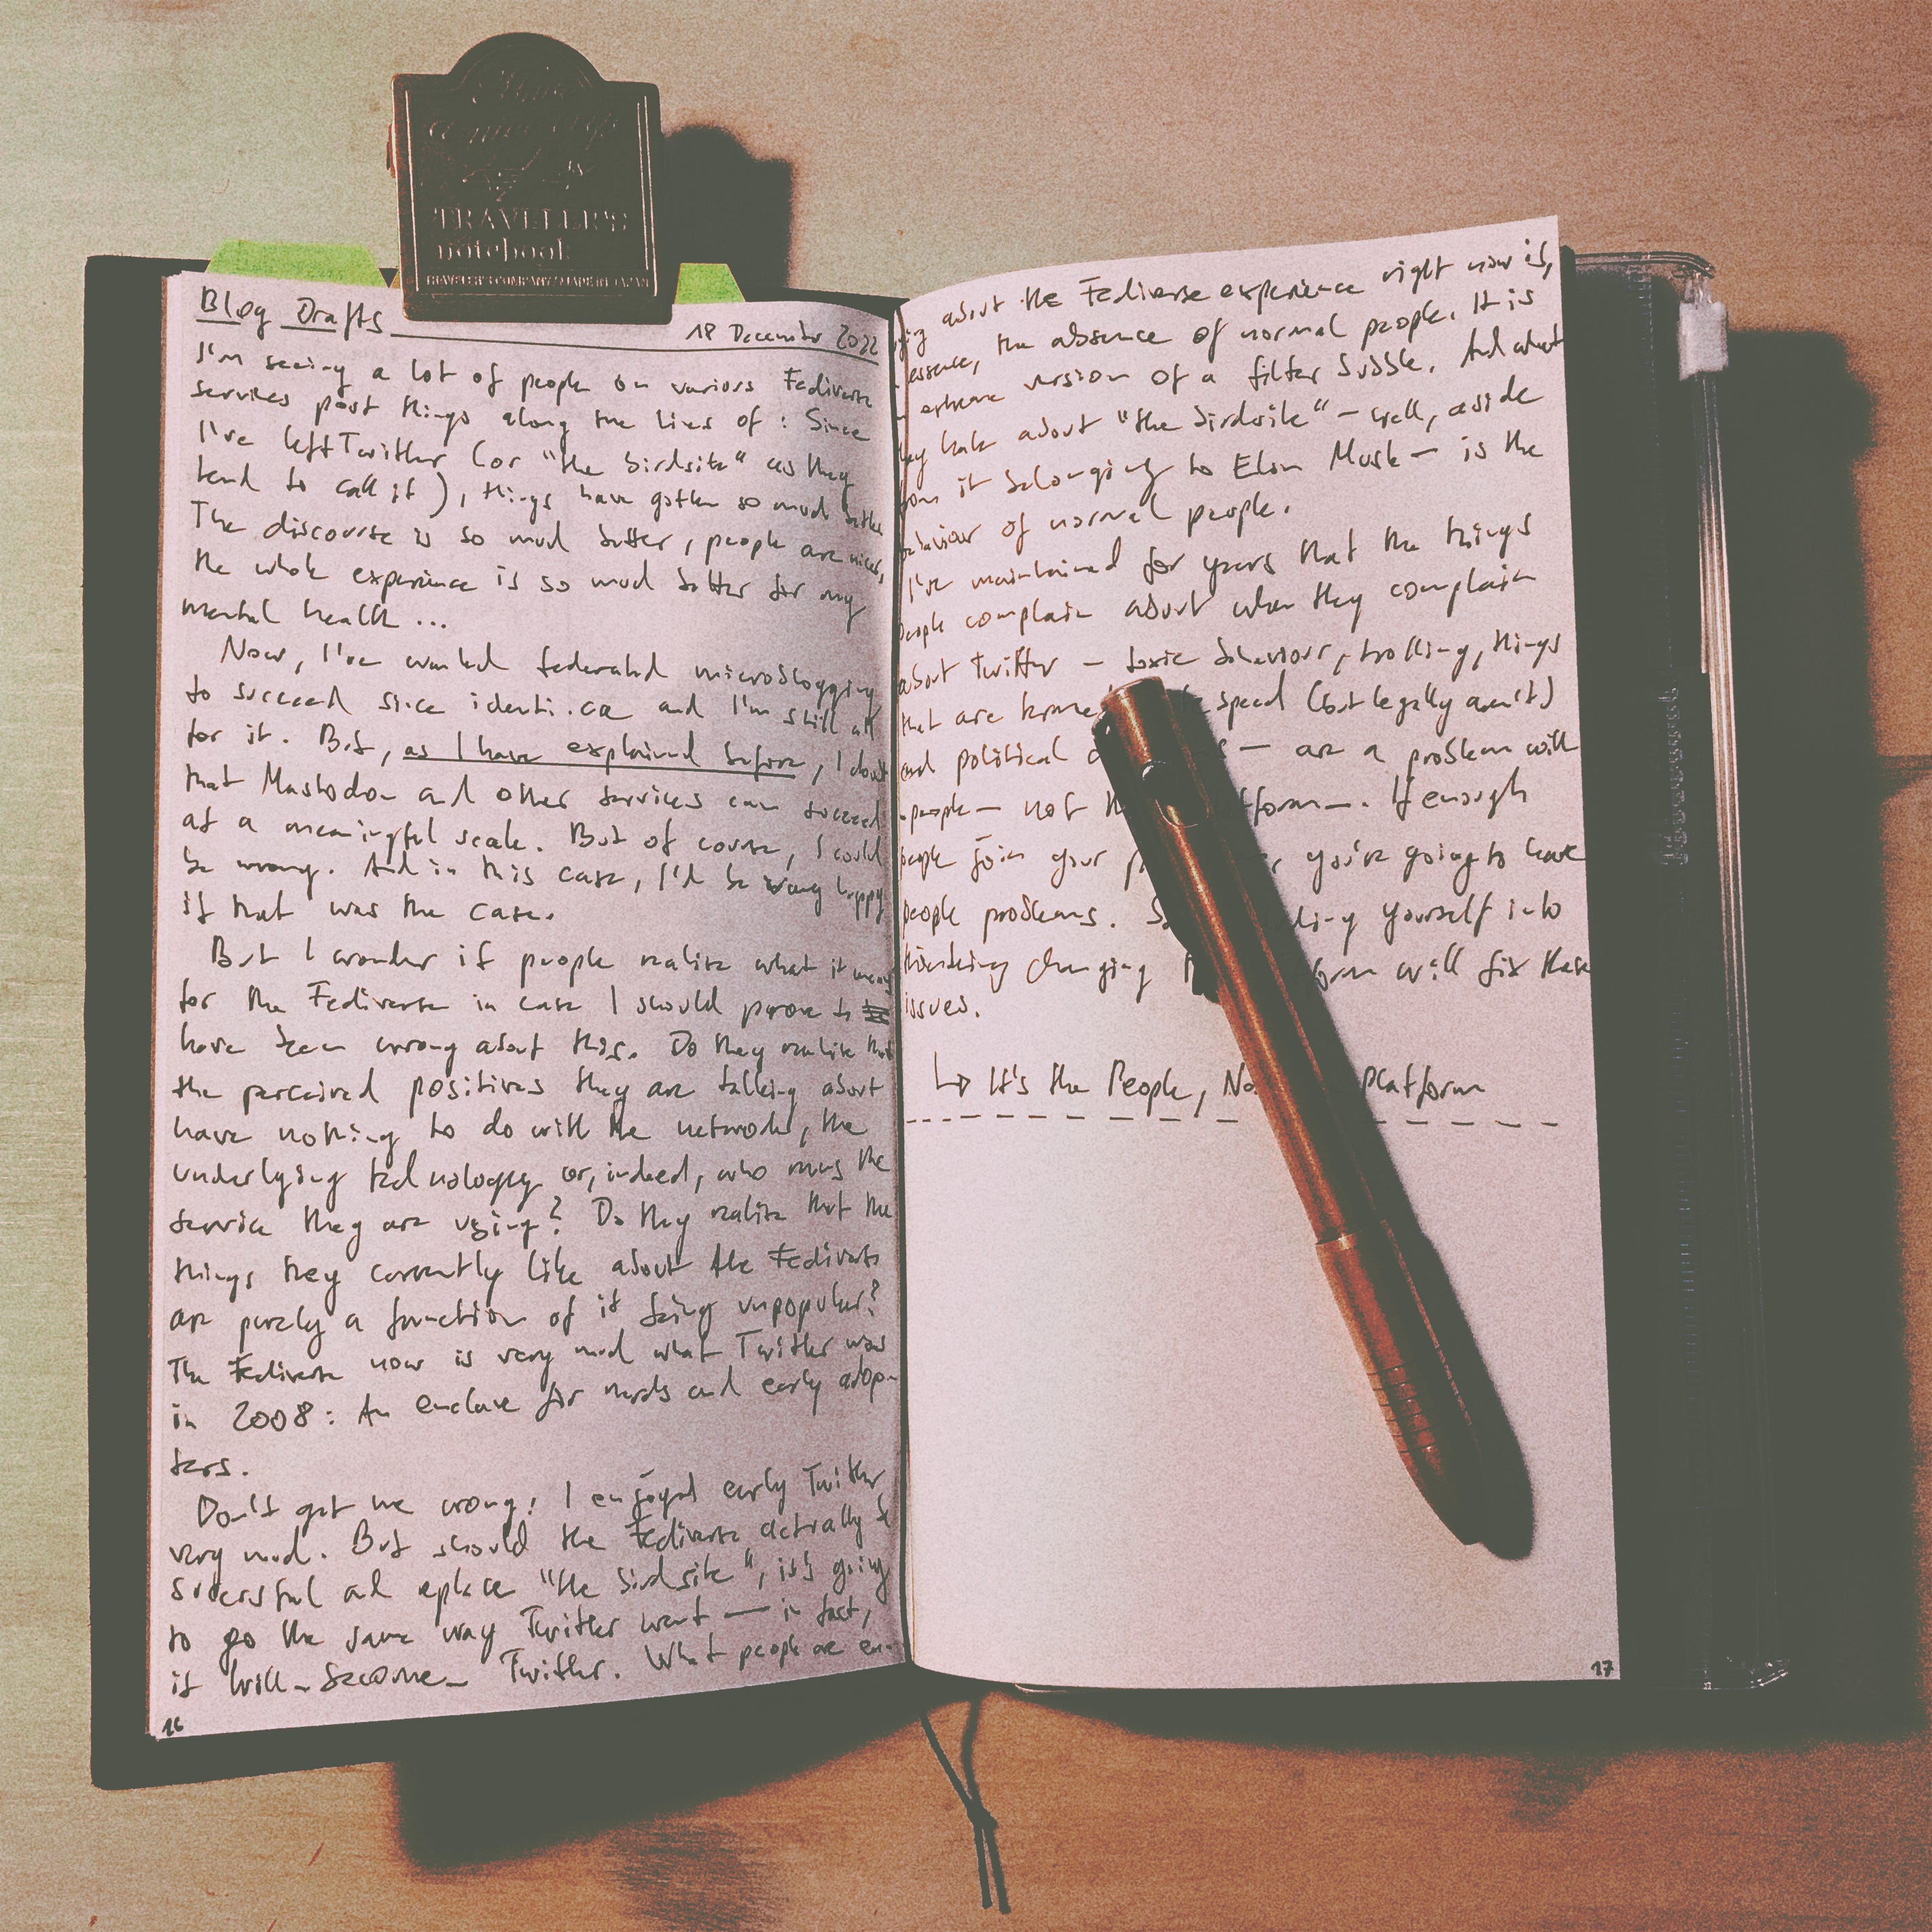 TRAVELER'S
notebook
TRAVELER'S COMPANY MADE IN JAPAN
Blog Drafts
18 December 2022
I'm seeing a lot of people on various Fediverse
services post things along the lines of: Since
I've left Twitter (or "the birdsite" as they
tend to call it), things have gotten so much better
The discourse is so much better, people are nicer,
the whole experience is so much better for my
mental health ...
Now, I've wanted federated microblogging
to succeed since identi.ca and I'm still all
for it. But, as I have explained before, I doubt
that Mastodon and other services can succeed
at a meaningful scale. But of course, I could
be wrong. And in this case, I'd be very happy
if that was the case.
But I wonder if people realise what it means
for the Fediverse in case I should prove to
have been wrong about this. Do they realise that
the perceived positives they are talking about
have nothing to do with the network, the
underlying technology or, indeed, who runs the
service they are using? Do they realise that the
things they currently like about the Fediverse
are purely a function of it being unpopular?
The Fediverse now is very much what Twitter was
in 2008: An enclave for nerds and early adop-
ters.
Don't get me wrong! I enjoyed early Twitter
very much. But should the Fediverse actually be
successful and replace "the birdsite", it's going
to go the same way Twitter went — in fact,
it will _become_ Twitter. What people are en-
16
about the Fediverse experience right now is,
essence, the absence of normal people. It is
extreme version of a filter bubble. And what
hate about "the birdsite" — well, aside
from it belonging to Elon Musk — is the
behaviour of normal people.
I've maintained for years that the things
people complain about when they complain
about Twitter — toxic behaviour, trolling, things
that are speech (but legally aren't)
and political — are a problem with
people — not. If enough
people join your you're going to have
people problems. yourself into
thinking changing will fix these
issues.
↳ It's the People, Platform
17